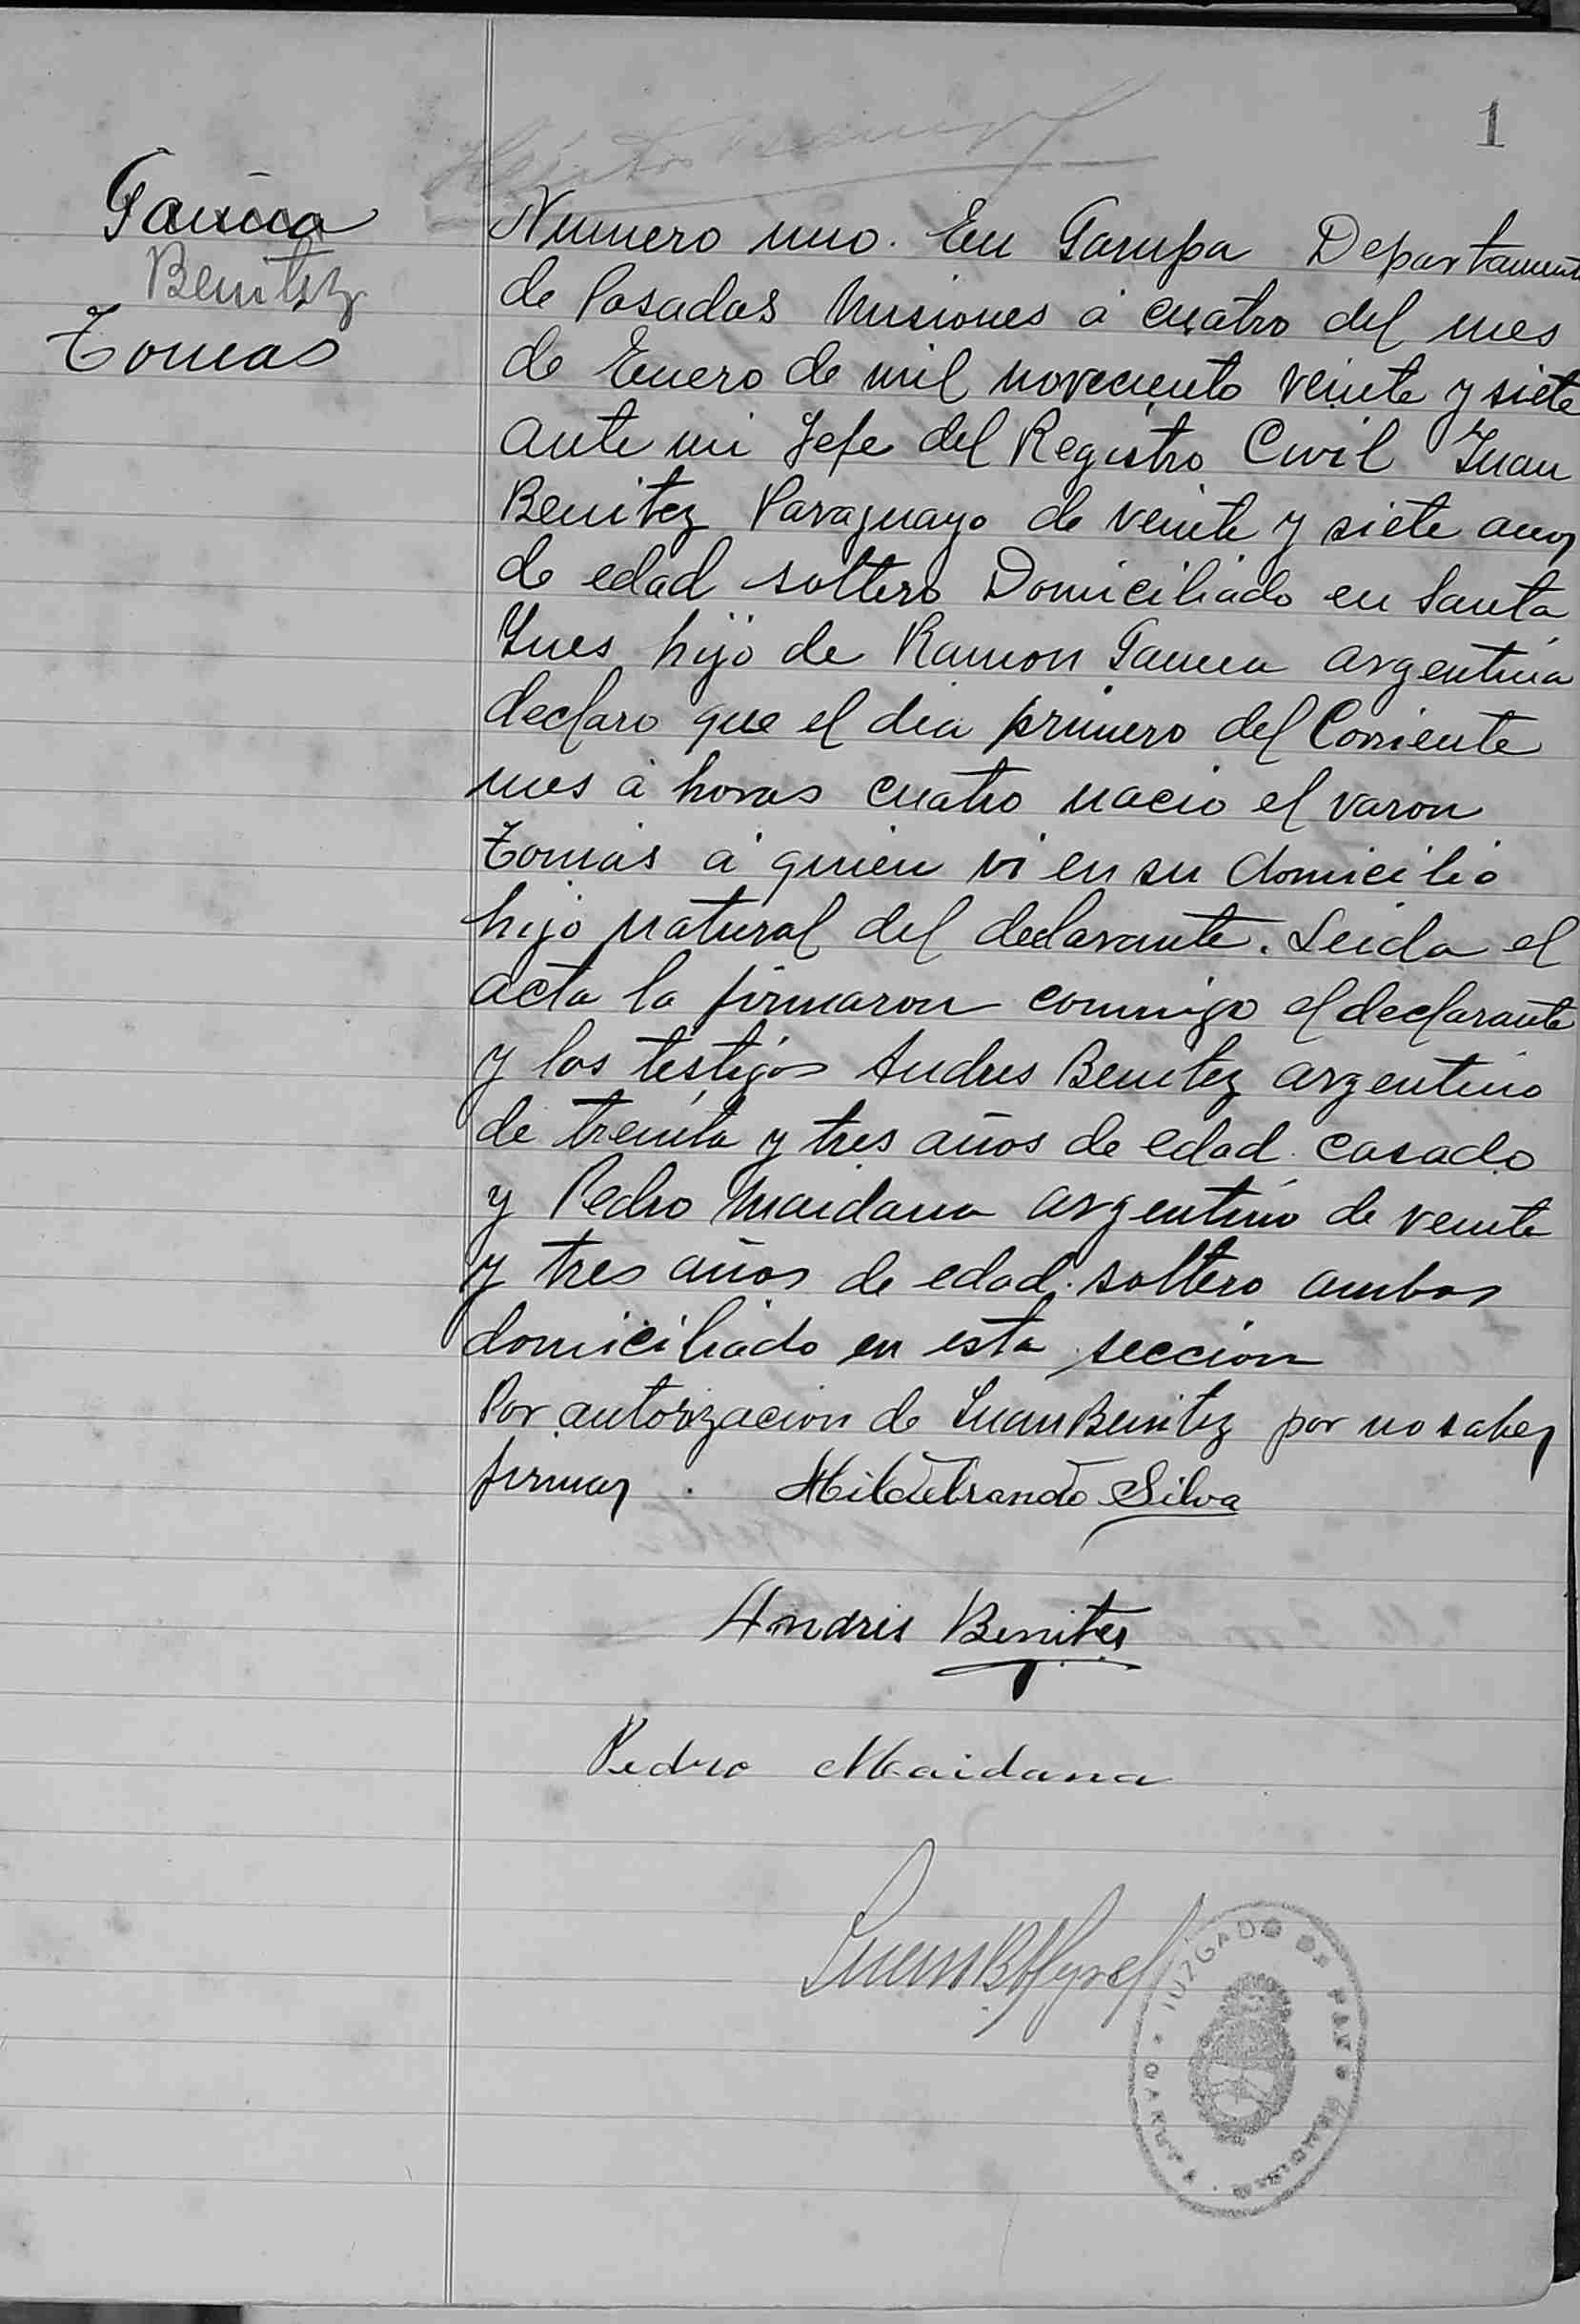 1
Gauna
Benitez
Tomas
Numero uno. En Garupa Departamento
de Posadas Misiones á cuatro del mes
de Enero de mil noveciento veinte y siete
ante mi Jefe del Registro Civil Juan
Benitez Paraguayo de veinte y siete años
de edad soltero Domiciliado en Santa
Ines hijo de Ramon Gauna argentina
declaro que el dia primero del Corriente
mes á horas cuatro nacio el varon
Tomás á quien vi en su domicilio
hijo natural del declarante. Leida el
acta la firmaron conmigo el declarante
y los testigos Andres Benitez argentino
de treinta y tres años de edad. casado
y Pedro Maidana argentino de veinte
y tres años de edad. soltero ambos
domiciliado en esta seccion
Por autorizacion de Juan Benitez por no saber
firmar. Hildebrando Silva
Andris Benites
Pedro Maidana
JUZGADO DE PAZ
GARUPA